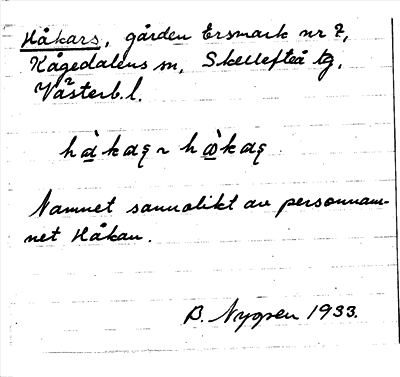 Håkars, gården Ersmark nr ?,
Kågedalens sn, Skellefteå tg,
Västerb. l.
Namnet sannolikt av personnam-
net Håkan.
B. Nygren 1933.